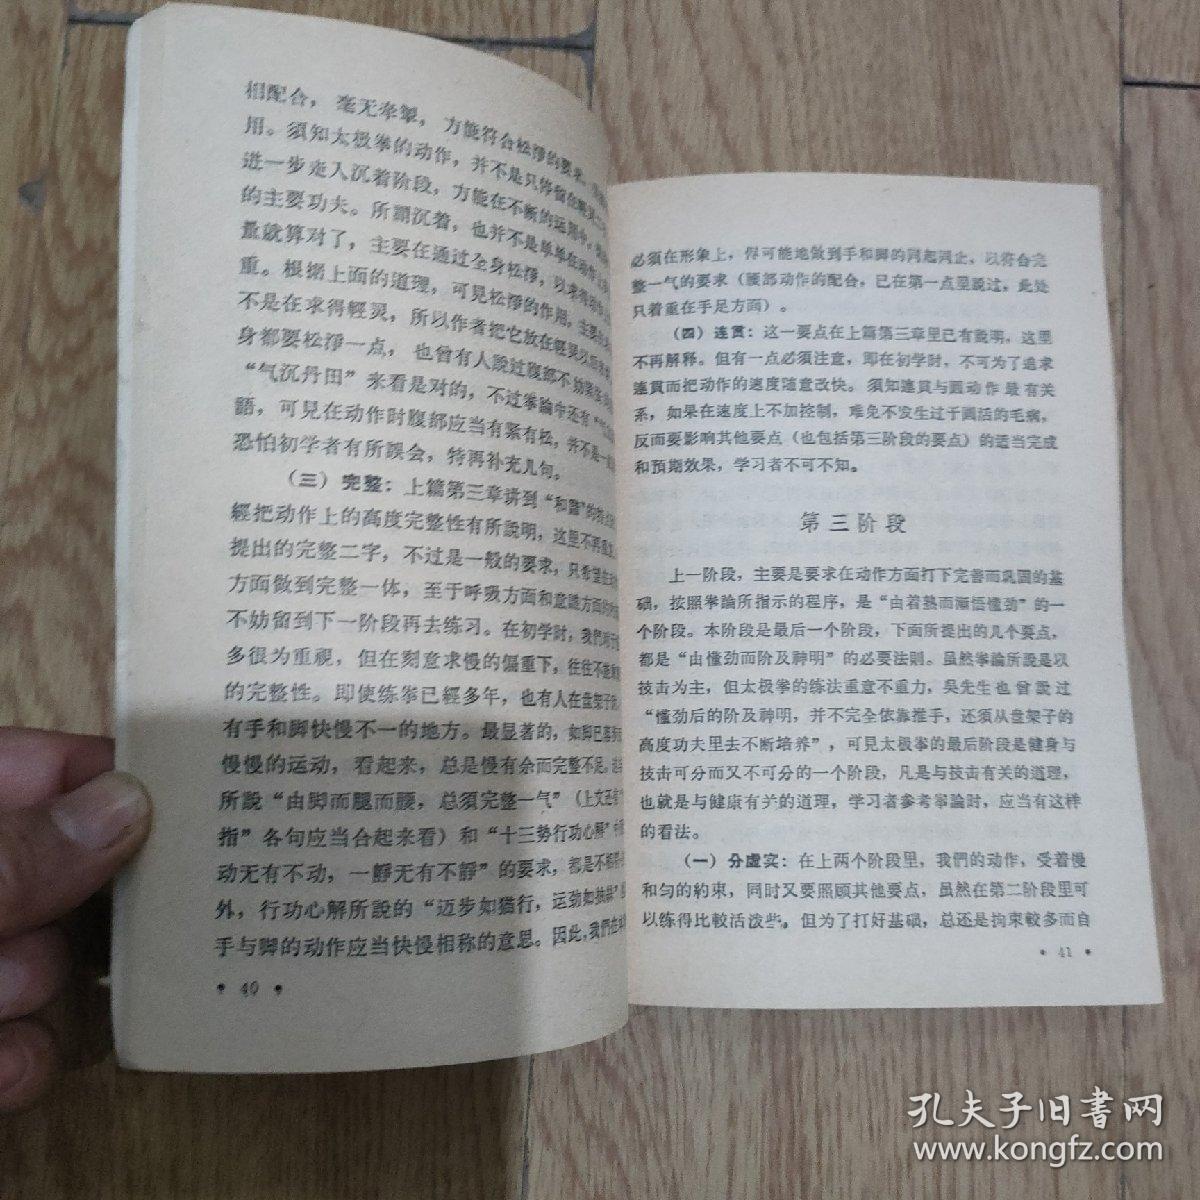 相配合，毫无牵掣，方能符合松淨的要求，
用。须知太极拳的动作，并不是只停留在
进一步走入沉着阶段，方能在不断的运用中，
的主要功夫。所謂沉着，也并不是单单在动作
量就算对了，主要在通过全身松淨，以求得
重。根据上面的道理，可見松淨的作用，主要
不是在求得輕灵，所以作者把它放在輕灵
身都要松淨一点，也曾有人說过腹部不
“气沉丹田”来看是对的，不过拳論中还有
語，可見在动作时腹部应当有紧有松，并不是一
恐怕初学者有所誤会，特再补充几句。
（三）完整：上篇第三章讲到“和諧”的
經把动作上的高度完整性有所說明，这里不再重
提出的完整二字，不过是一般的要求，只希望
方面做到完整一体，至于呼吸方面和意識方面的
不妨留到下一阶段再去练习。在初学时，我們对于
多很为重視，但在刻意求慢的偏重下，往往不能
的完整性。即使练拳已經多年，也有人在盘架子
有手和脚快慢不一的地方。最显著的，如脚已落
慢慢的运动，看起来，总是慢有余而完整不足。
所說“由脚而腿而腰，总須完整一气”（上文还有
指”各句应当合起来看）和“十三势行功心解”
动无有不动，一靜无有不靜”的要求，都是不相
外，行功心解所說的“迈步如猫行，运劲如抽絲”
手与脚的动作应当快慢相称的意思。因此，我們在
• 40 •
必须在形象上，尽可能地做到手和脚的同起同止，以符合完
整一气的要求（腰部动作的配合，已在第一点里說过，此处
只着重在手足方面）。
（四）連貫：这一要点在上篇第三章里已有說明，这里
不再解释。但有一点必須注意，即在初学时，不可为了追求
連貫而把动作的速度隨意改快。须知連貫与圆动作最有关
系，如果在速度上不加控制，难免不发生过于圆活的毛病，
反而要影响其他要点（也包括第三阶段的要点）的适当完成
和預期效果，学习者不可不知。
第三阶段
上一阶段，主要是要求在动作方面打下完善而巩固的基
础，按照拳論所指示的程序，是“由着熟而漸悟懂劲”的一
个阶段。本阶段是最后一个阶段，下面所提出的几个要点，
都是“由懂劲而阶及神明”的必要法则。虽然拳論所說是以
技击为主，但太极拳的练法重意不重力，吳先生也曾說过
“懂劲后的阶及神明，并不完全依靠推手，还須从盘架子的
高度功夫里去不断培养”，可見太极拳的最后阶段是健身与
技击可分而又不可分的一个阶段，凡是与技击有关的道理，
也就是与健康有关的道理，学习者参考拳論时，应当有这样
的看法。
（一）分虚实：在上两个阶段里，我們的动作，受着慢
和匀的約束，同时又要照顾其他要点，虽然在第二阶段里可
以练得比較活泼些。但为了打好基础，总还是拘束較多而自
• 41 •
孔夫子旧書网
www.kongfz.com